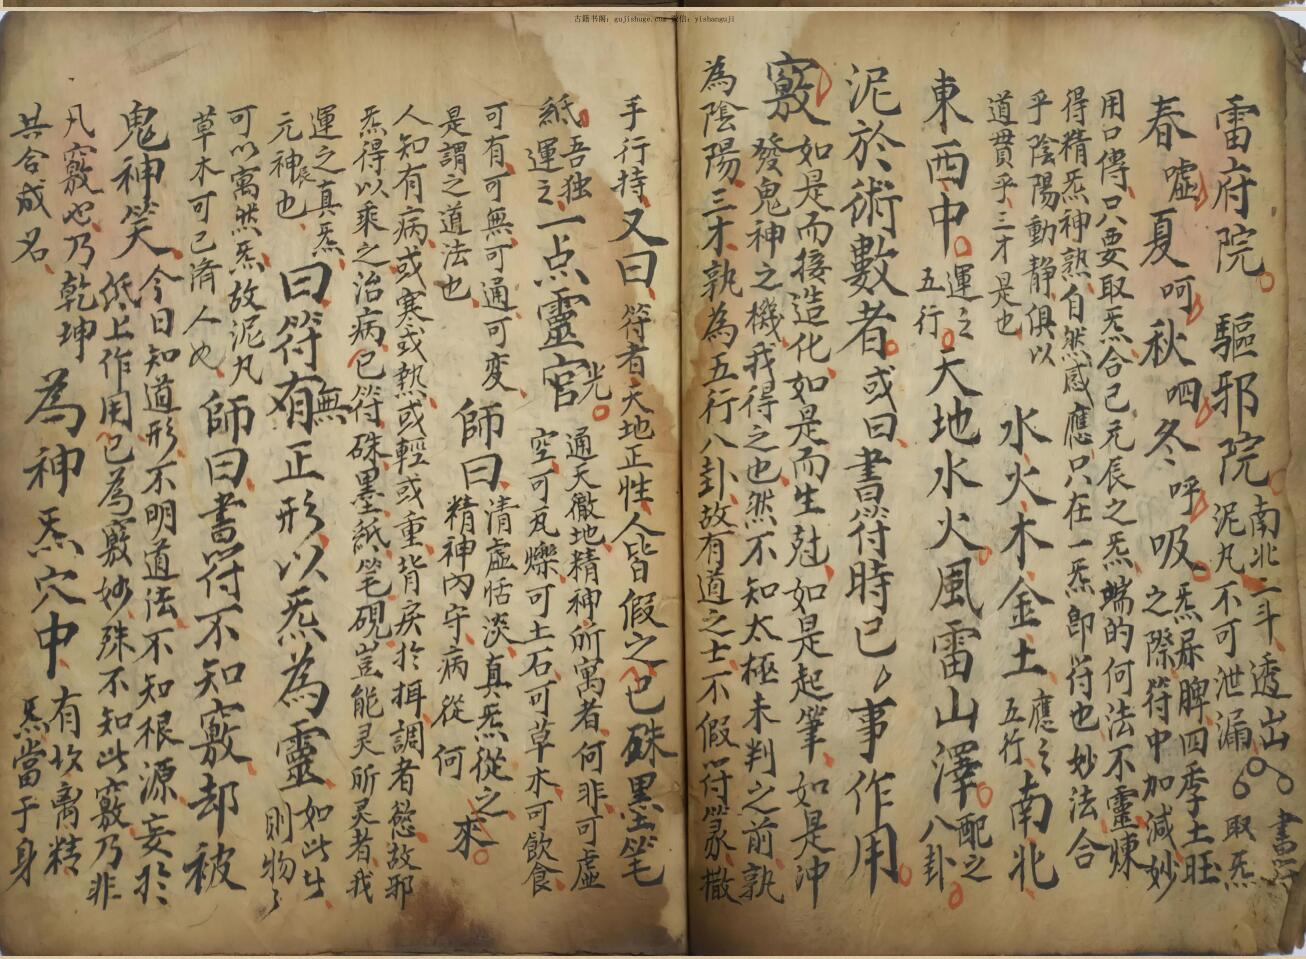 古籍书阁：gujishuge.com 微信：yishanguji
雷府院 驅邪院 南北二斗透出 書符
泥丸不可泄漏 取炁
春嘘夏呵秋呬冬呼吸 炁尿脾四季土旺
之際符中加減妙
用口傳只要取炁合己元辰之炁端的何法不靈煉
得精炁神熟自然感應只在一炁即符也妙法合
乎陰陽動靜俱以
道貫乎三才是也
水火木金土 應之
五行
南北
東西中 運之
五行
天地水火風雷山澤 配之
八卦
泥於術數者或曰書符時已事作用
竅 如是而接造化如是而生尅如是起筆如是沖
發鬼神之機我得之也然不知太極未判之前孰
為陰陽三才孰為五行八卦故有道之士不假符篆撒
手行持又曰 符者天地正性人皆假之也硃墨笔
紙吾独
運之一点靈官光 通天徹地精神所寓者何非可虛
空可瓦爍可土石可草木可飲食
可有可無可通可変
是謂之道法也
師曰 清虛恬淡真炁從之
精神內守病從何
來
人知有病或寒或熱或輕或重皆戾於揖調者愆故邪
炁得以乘之治病已符硃墨紙笔硯豈能灵所灵者我
運之真炁
元神辰也
曰符無有正形以炁為靈 如此出
則物々
可以寓然炁故泥丸
草木可已濟人也
師曰書符不知竅却被
鬼神笑 今日知道形不明道法不知根源妄於
低上作用已為竅妙殊不知此竅乃非
凡竅也乃乾坤
共合成名
為神炁穴中 有坎离精
炁當于身